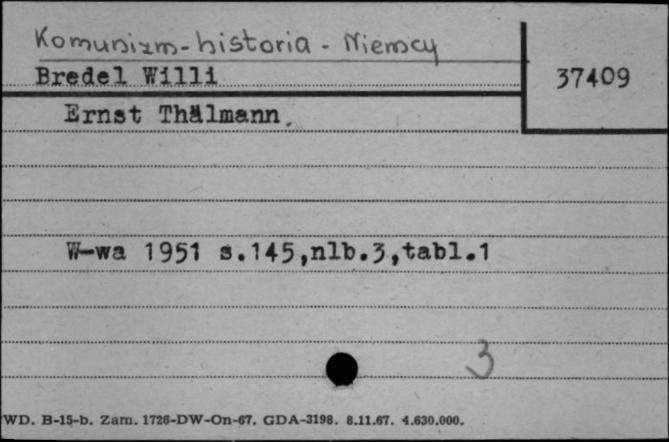 Komunizm - historia - Niemcy
Bredel Willi
37409
Ernst Thälmann.
W-wa 1951 s.145,nlb.3,tabl.1
3
WD. B-15-b. Zam. 1726-DW-On-67. GDA-3198. 8.11.67. 4.630.000.